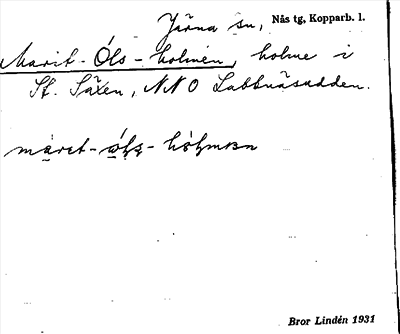 Järna sn, Nås tg, Kopparb. l.
Marit-Óls-holmen, holme i
St. Säxen, NNO Labbnäsudden.
Bror Lindén 1931